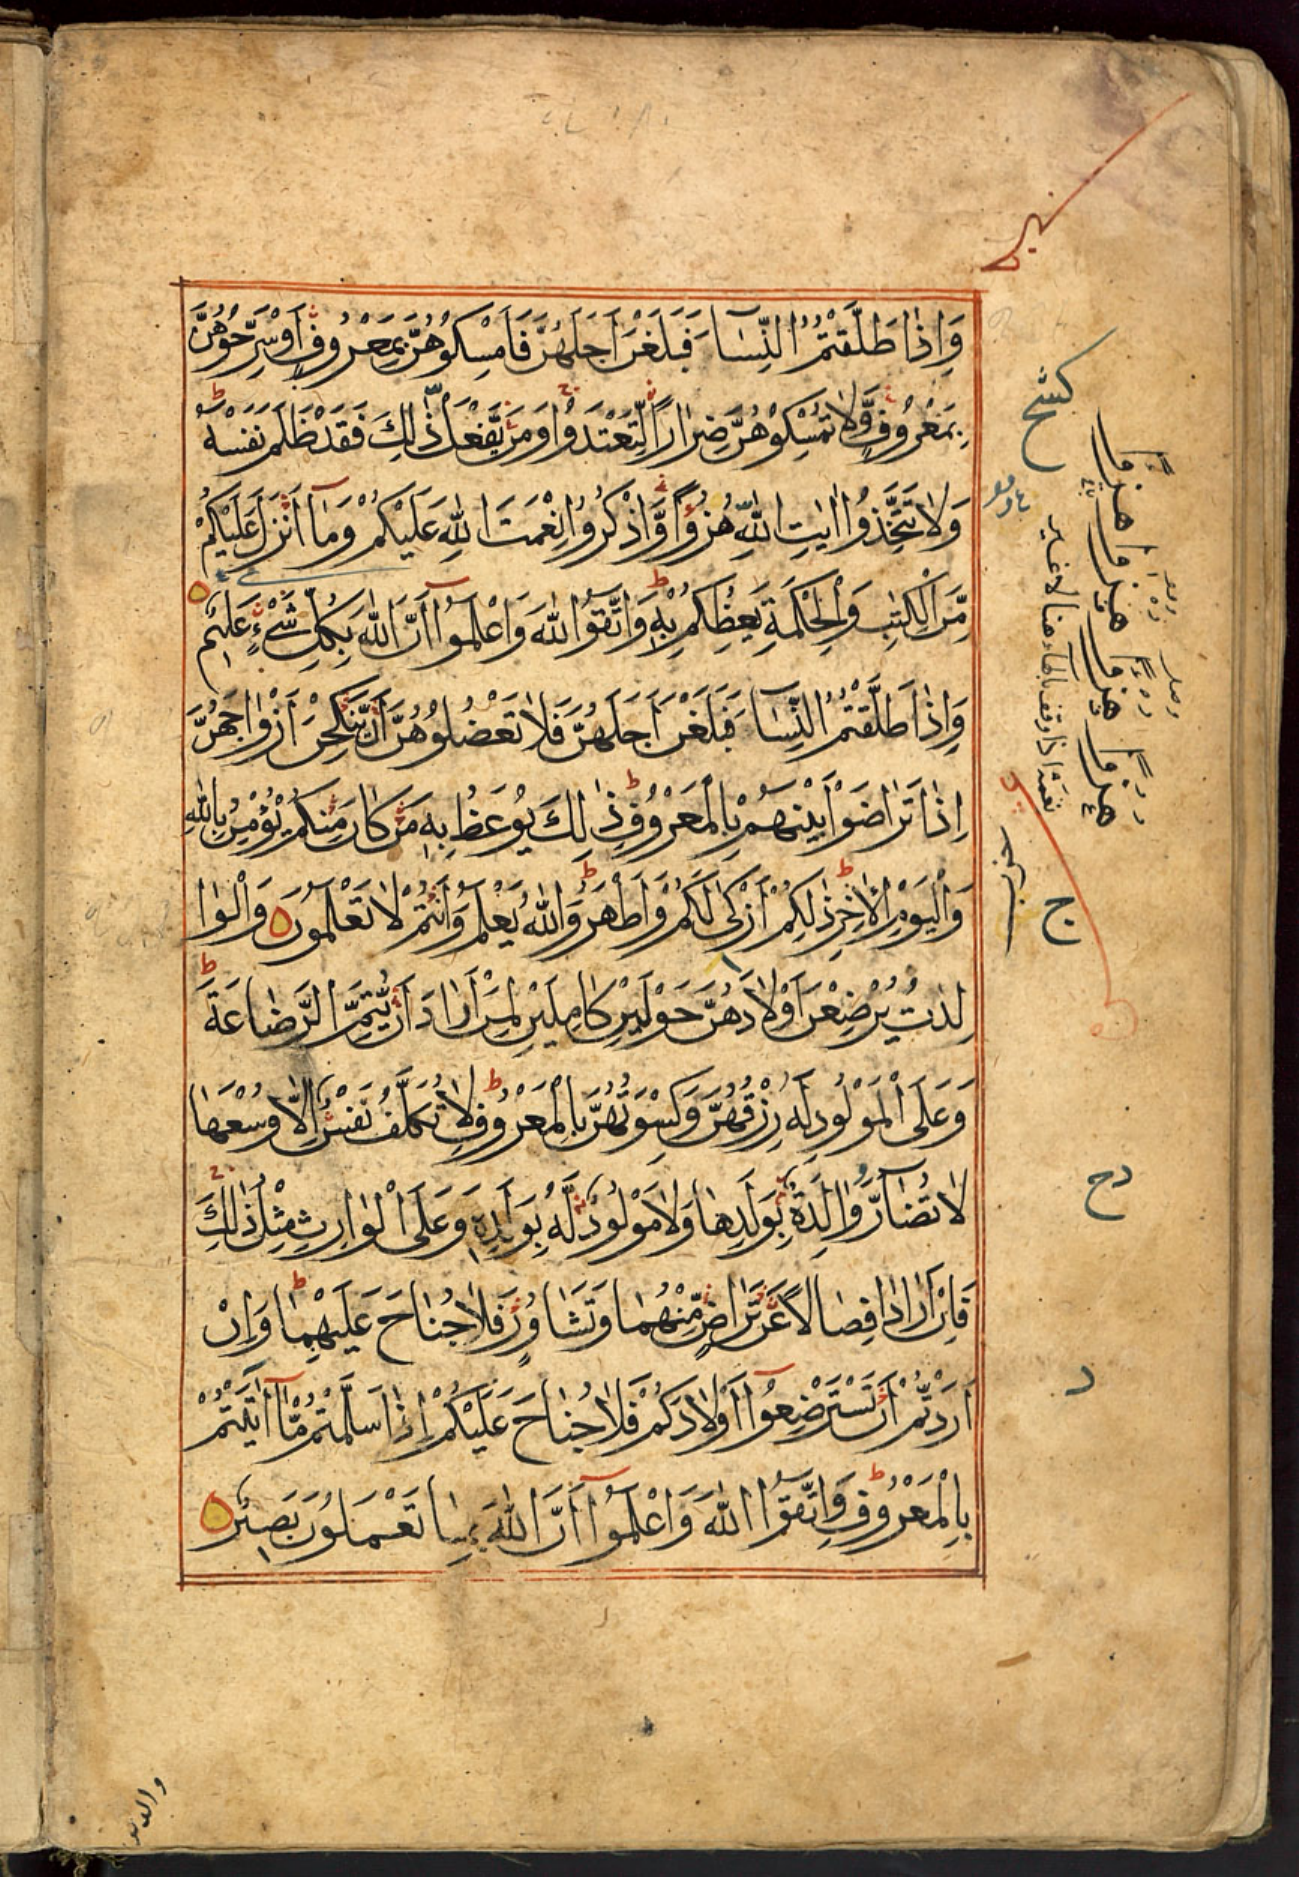 وَاِذَا طَلَّقْتُمُ النِّسَآءَ فَبَلَغْنَ اَجَلَهُنَّ فَاَمْسِكُوْهُنَّ بِمَعْرُوْفٍ اَوْ سَرِّحُوْهُنَّ
بِمَعْرُوْفٍ وَّلَا تُمْسِكُوْهُنَّ ضِرَارًا لِّتَعْتَدُوْا وَمَنْ يَّفْعَلْ ذٰلِكَ فَقَدْ ظَلَمَ نَفْسَهٗ
وَلَا تَتَّخِذُوْا اٰيٰتِ اللّٰهِ هُزُوًا وَّاذْكُرُوْا نِعْمَتَ اللّٰهِ عَلَيْكُمْ وَمَآ اَنْزَلَ عَلَيْكُمْ
مِّنَ الْكِتٰبِ وَالْحِكْمَةِ يَعِظُكُمْ بِهٖ وَاتَّقُوا اللّٰهَ وَاعْلَمُوْا اَنَّ اللّٰهَ بِكُلِّ شَيْءٍ عَلِيْمٌ
وَاِذَا طَلَّقْتُمُ النِّسَآءَ فَبَلَغْنَ اَجَلَهُنَّ فَلَا تَعْضُلُوْهُنَّ اَنْ يَّنْكِحْنَ اَزْوَاجَهُنَّ
اِذَا تَرَاضَوْا بَيْنَهُمْ بِالْمَعْرُوْفِ ذٰلِكَ يُوْعَظُ بِهٖ مَنْ كَانَ مِنْكُمْ يُؤْمِنُ بِاللّٰهِ
وَالْيَوْمِ الْاٰخِرِ ذٰلِكُمْ اَزْكٰى لَكُمْ وَاَطْهَرُ وَاللّٰهُ يَعْلَمُ وَاَنْتُمْ لَا تَعْلَمُوْنَ وَالْوَا
لِدٰتُ يُرْضِعْنَ اَوْلَادَهُنَّ حَوْلَيْنِ كَامِلَيْنِ لِمَنْ اَرَادَ اَنْ يُّتِمَّ الرَّضَاعَةَ
وَعَلَى الْمَوْلُوْدِ لَهٗ رِزْقُهُنَّ وَكِسْوَتُهُنَّ بِالْمَعْرُوْفِ لَا تُكَلَّفُ نَفْسٌ اِلَّا وُسْعَهَا
لَا تُضَآرَّ وَالِدَةٌ بِوَلَدِهَا وَلَا مَوْلُوْدٌ لَّهٗ بِوَلَدِهٖ وَعَلَى الْوَارِثِ مِثْلُ ذٰلِكَ
فَاِنْ اَرَادَا فِصَالًا عَنْ تَرَاضٍ مِّنْهُمَا وَتَشَاوُرٍ فَلَا جُنَاحَ عَلَيْهِمَا وَاِنْ
اَرَدْتُّمْ اَنْ تَسْتَرْضِعُوْا اَوْلَادَكُمْ فَلَا جُنَاحَ عَلَيْكُمْ اِذَا سَلَّمْتُمْ مَّآ اٰتَيْتُمْ
بِالْمَعْرُوْفِ وَاتَّقُوا اللّٰهَ وَاعْلَمُوْا اَنَّ اللّٰهَ بِمَا تَعْمَلُوْنَ بَصِيْرٌ
ج
دح
د